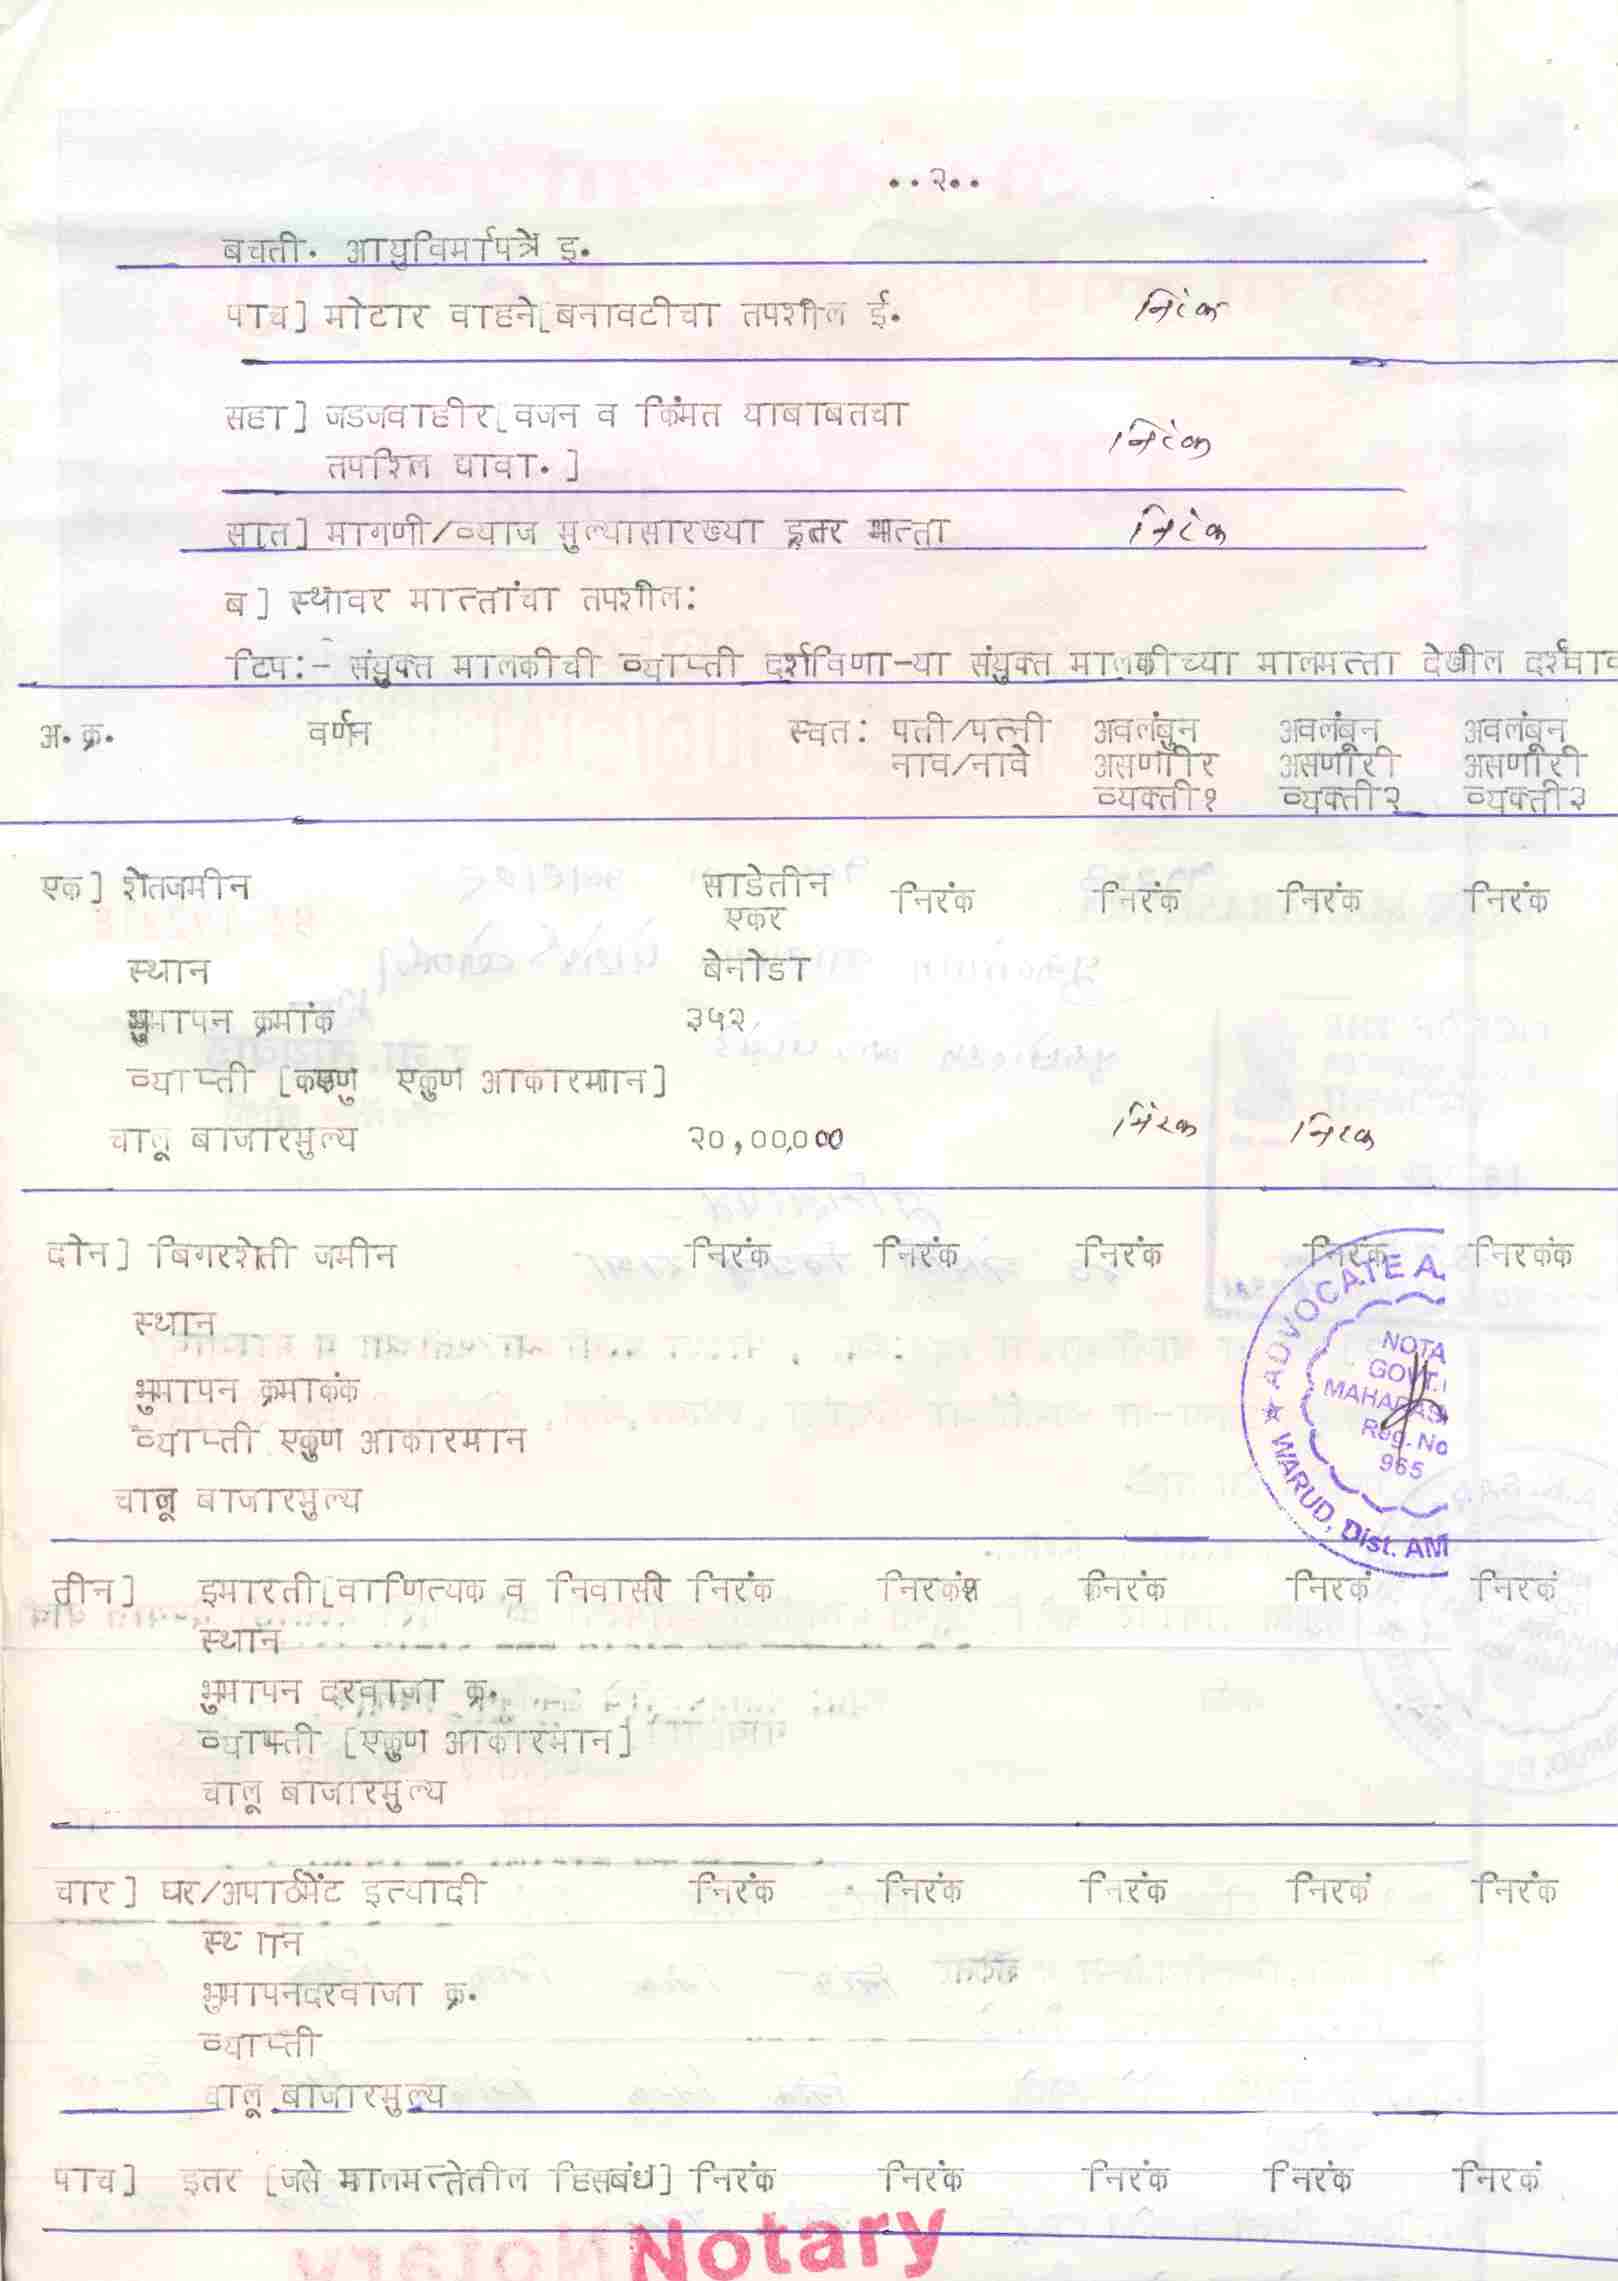 ..२..
बचती. आयुविमापत्रे इ.
पाच] मोटार वाहने[बनावटीचा तपशील ई. निरंक
सहा] जडजवाहीर[वजन व किंमत याबाबतचा निरंक
तपशिल द्यावा.]
सात] मागणी/व्याज मुल्यासारख्या इतर मत्ता निरंक
ब] स्थावर मात्तांचा तपशील:
टिप:- संयुक्त मालकीची व्याप्ती दर्शविणा-या संयुक्त मालकीच्या मालमत्ता देखील दर्शवाव
अ.क्र. वर्णन स्वत: पती/पत्नी अवलंबुन अवलंबून अवलंबून
नाव/नावे असणारि असणारी असणारी
व्यक्ती१ व्यक्ती२ व्यक्ती३
एक] शेतजमीन साडेतीन निरंक निरंक निरंक निरंक
एकर
स्थान बेनोडा
भुमापन क्रमांक ३५२
व्याप्ती [एकुण आकारमान]
चालू बाजारमुल्य २०,००,००० निरंक निरंक
दोन] बिगरशेती जमीन निरंक निरंक निरंक निरंक निरकंक
स्थान
भुमापन क्रमाकंक
व्याप्ती एकुण आकारमान
चालू बाजारमुल्य
ADVOCATE A.
NOTA
GOVT.
MAHARAS
Reg. No
965
★ WARUD, Dist. AM
तीन] इमारती[वाणित्यक व निवासी निरंक निरकं निरंक निरकं निरकं
स्थान
भुमापन दरवाजा क्र.
व्याप्ती [एकुण आकारमान]
चालू बाजारमुल्य
चार] घर/अपार्टमेंट इत्यादी निरंक निरंक निरंक निरकं निरंक
स्थान
भुमापनदरवाजा क्र.
व्याप्ती
चालू बाजारमुल्य
पाच] इतर [जसे मालमत्तेतील हिसबंध] निरंक निरंक निरंक निरंक निरकं
Notary